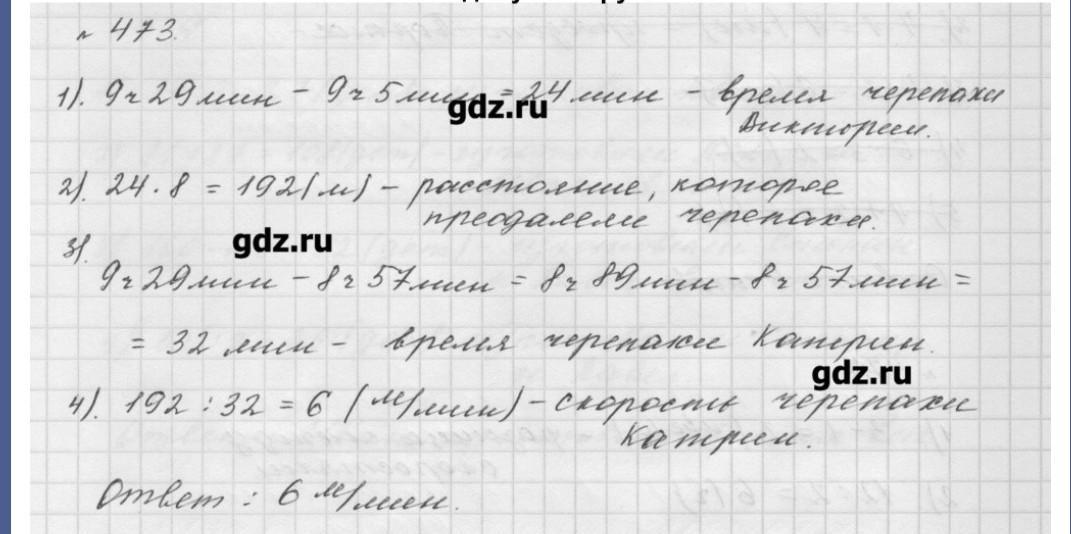 № 473.
1). 9ч 29 мин - 9ч 5 мин = 24 мин - время черепахи
Виктории.
gdz.ru
2). 24 · 8 = 192 (м) - расстояние, которое
преодалели черепахи.
gdz.ru
3).
9ч 29 мин - 8ч 57 мин = 8ч 89 мин - 8ч 57 мин =
= 32 мин - время черепахи Катрин.
gdz.ru
4). 192 : 32 = 6 (м/мин) - скорость черепахи
Катрин.
Ответ : 6 м/мин.